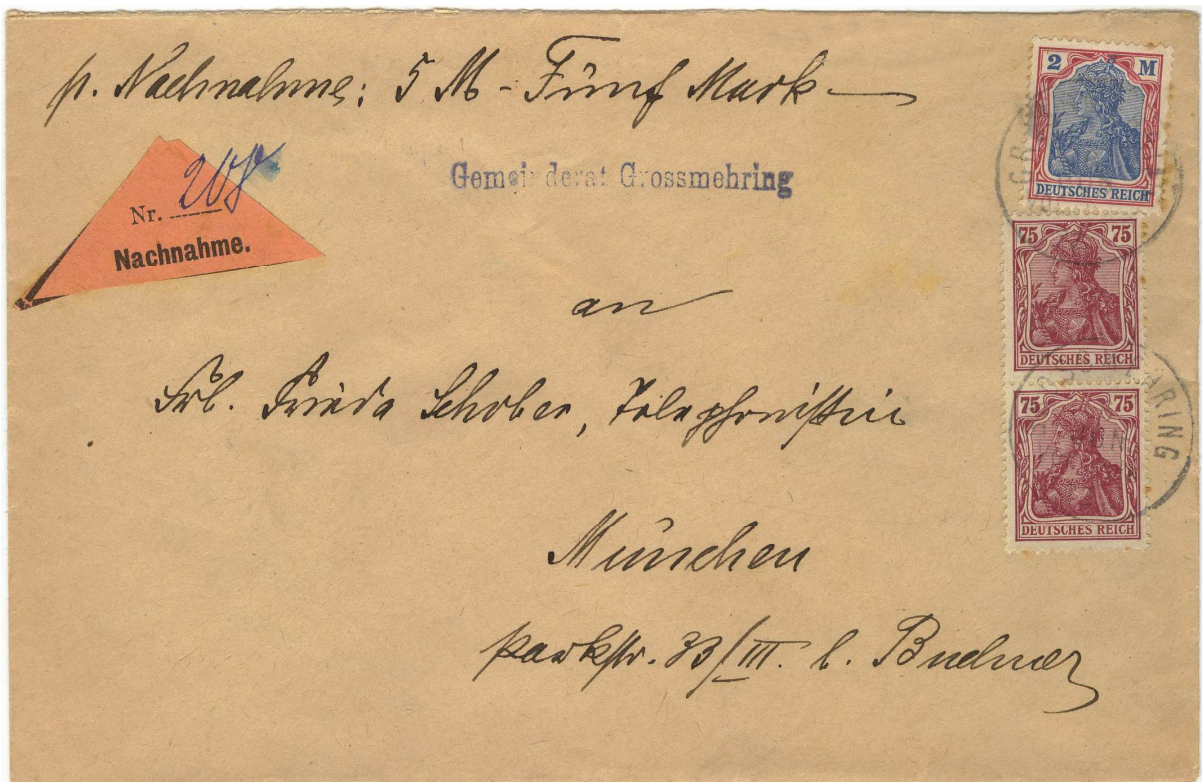 p. Nachnahme: 5 M - Fünf Mark -
Nr. 208
Nachnahme.
Gemeinderat Grossmehring
2 M
DEUTSCHES REICH
75 75
DEUTSCHES REICH
75 75
DEUTSCHES REICH
GROSSMEHRING
an
Frl. Frieda Schober, Telephonistin
München
Parkstr. 33/III. b.